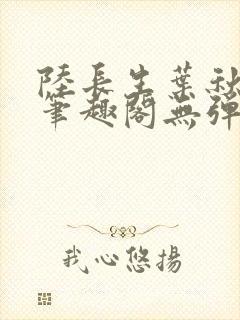 陸長生葉秋
筆趣閣無彈
我心悠揚